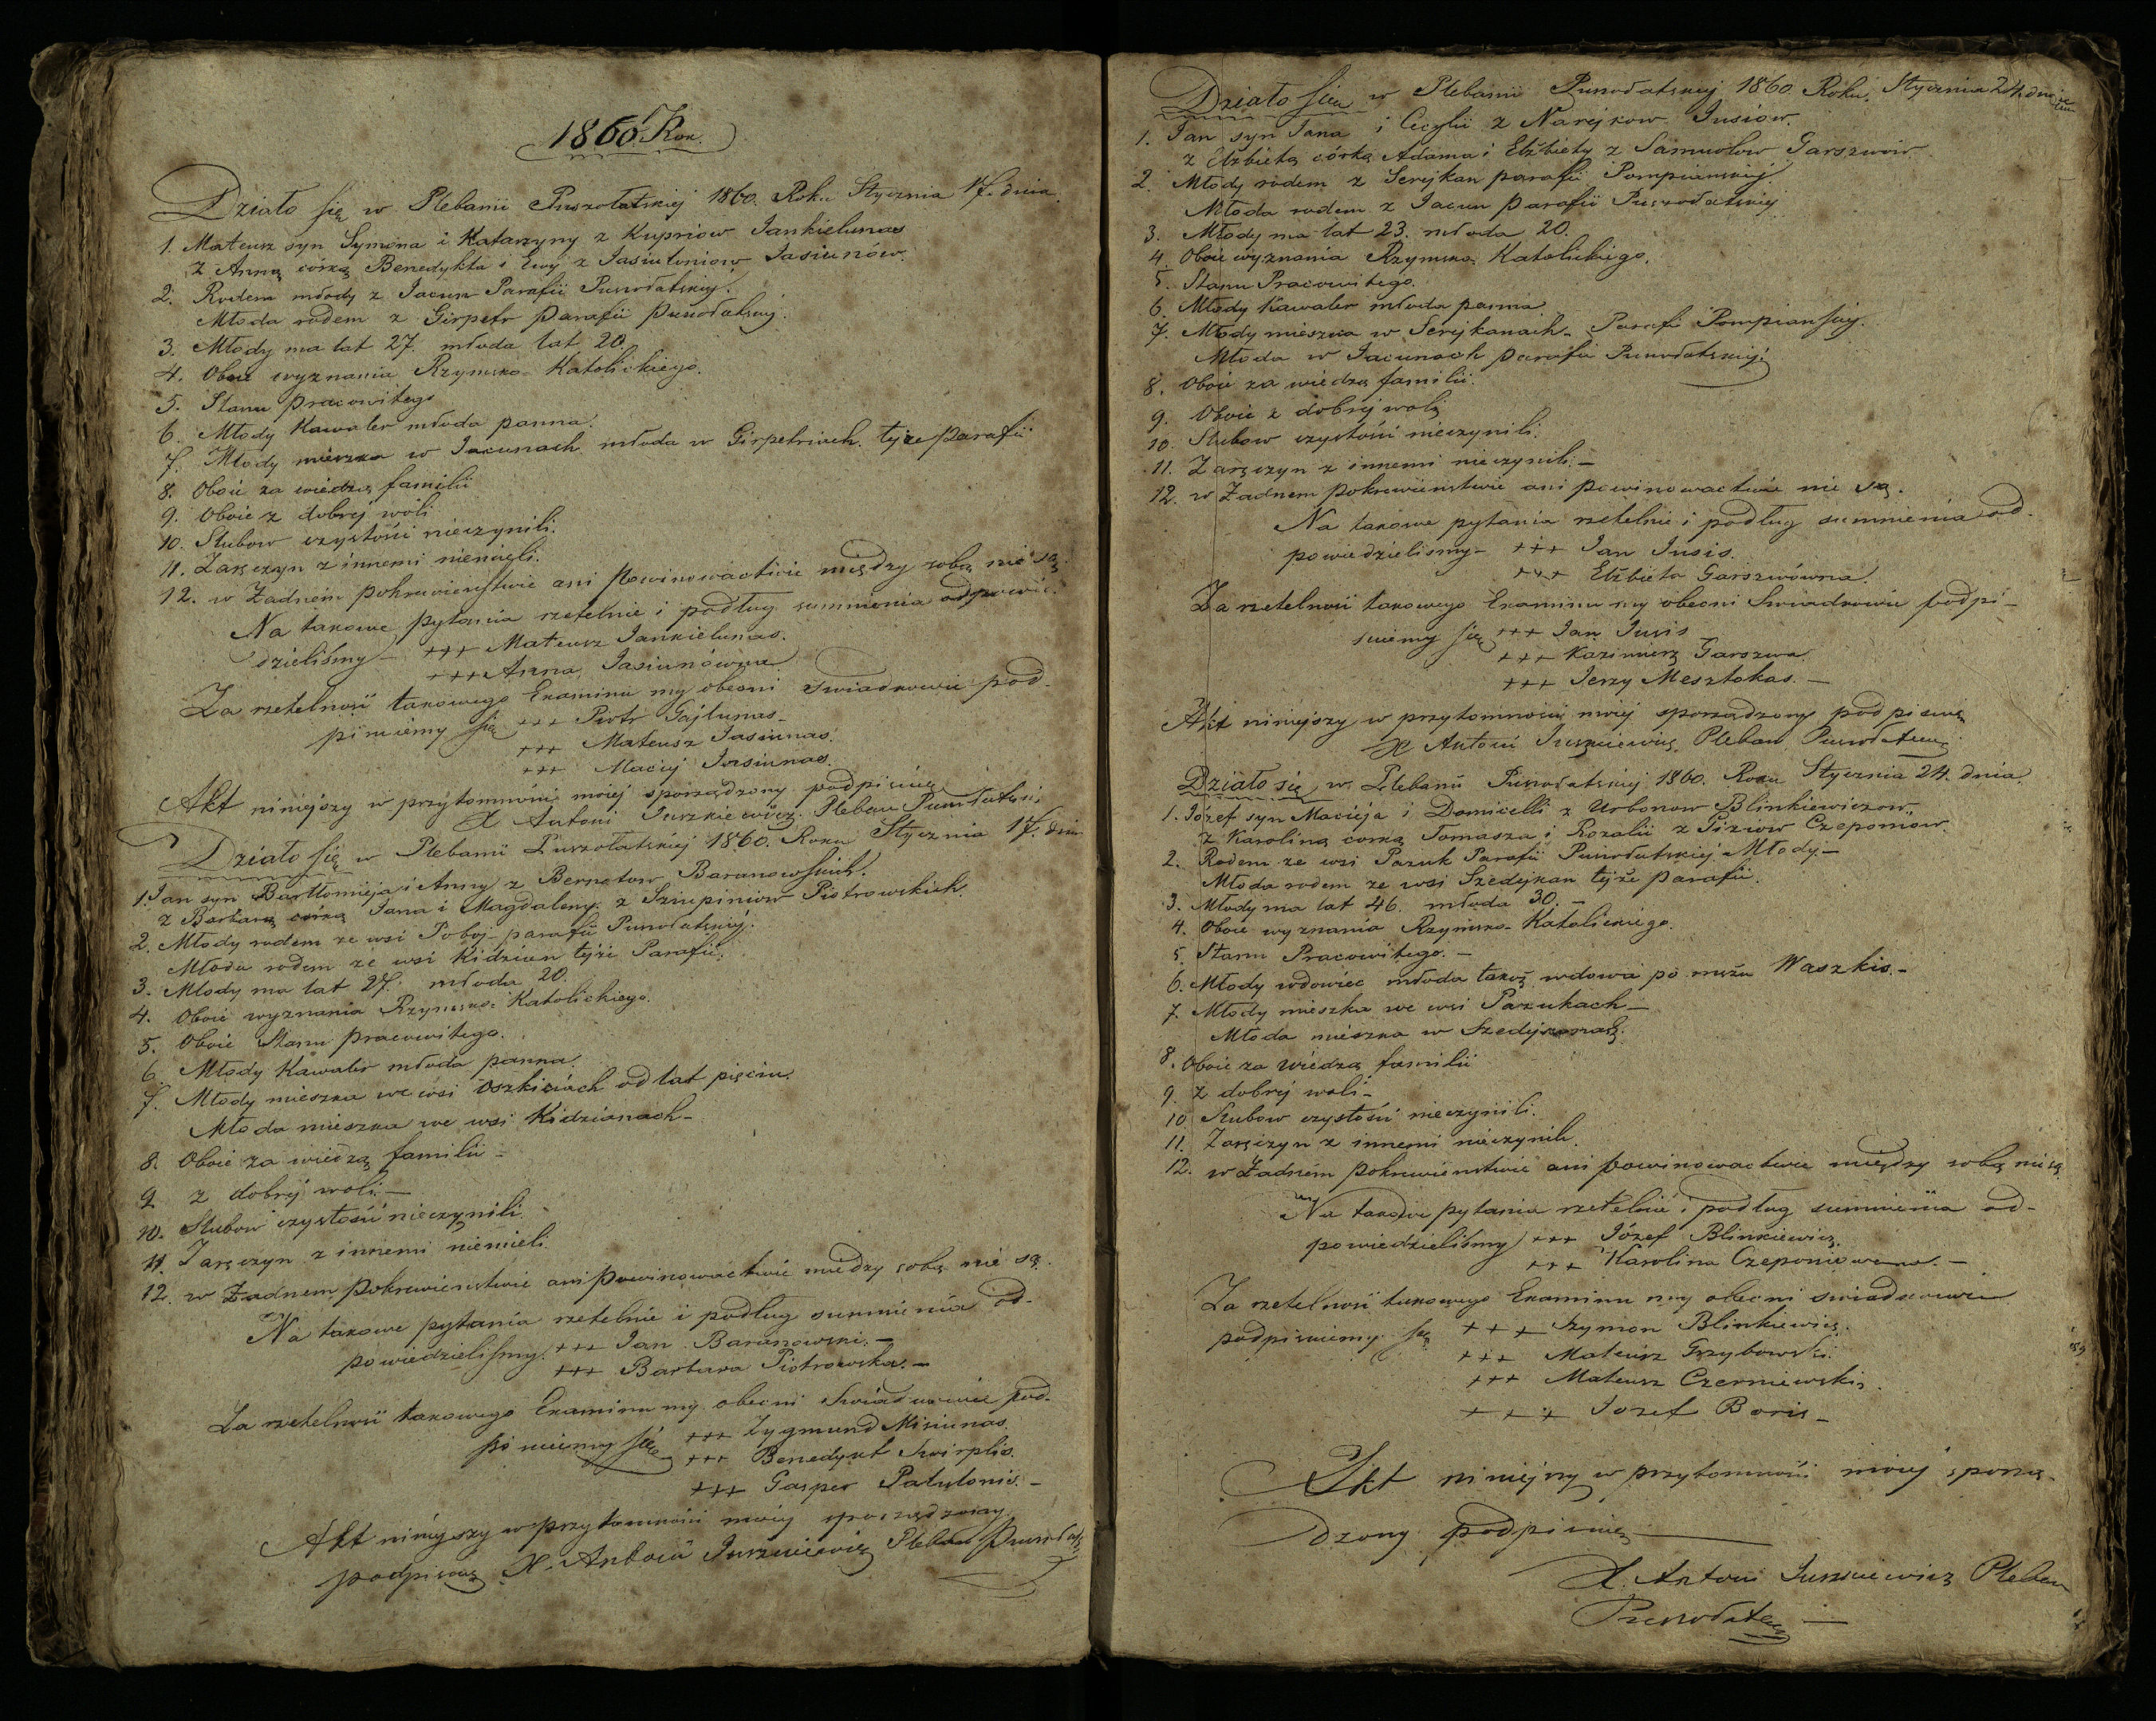 1860 Rok.
Działo się w Plebanii Puszołatskiej 1860. Roku Stycznia 17. dnia.
1. Mateusz syn Symona i Katarzyny z Kupriow Jankielunas
z Anną córką Benedykta i Ewy z Jasiutoniow Jasiunów.
2. Rodem młody z Jacun Parafii Puszołatskiej.
Młoda rodem z Girpetr Parafii Puszołatskiej.
3. Młody ma lat 27. młoda lat 20.
4. Oboie wyznania Rzymsko Katolickiego.
5. Stanu pracowitego
6. Młody Kawaler młoda panna.
7. Młody mieszka w Jacunach młoda w Girpetriach tejże Parafii
8. Oboie za wiedzą familii
9. Oboie z dobrej woli
10. Slubow czystości nieczynili.
11. Zaręczyn z innemi niemieli.
12. w Żadnem pokrewieństwie ani Powinowactwie między sobą nie są.
Na takowe pytania rzetelnie i podług summienia odpowie-
dzieliśmy — +++ Mateusz Jankielunas.
+++ Anna Jasiunówna
Za rzetelność takowego Examinu my obecni swiadkowie pod-
pisuiemy się +++ Piotr Gajlunas —
+++ Mateusz Jasiunas.
+++ Maciej Jasiunas.
Akt niniejszy w przytomności mojej sporządzony podpisuię
X Antoni Juszkiewicz. Pleban Puszołatski
Działo się w Plebanii Puszołatskiej 1860. Roku Stycznia 17. dnia
1. Jan syn Bartłomieja i Anny z Bernatow Baranowskich.
z Barbarą corką Jana i Magdaleny z Sziupiniow Piotrowskich.
2. Młody rodem ze wsi Poboj parafii Puszołatskiej.
Młoda rodem ze wsi Kidzian tejże Parafii.
3. Młody ma lat 27. młoda 20.
4. Oboie wyznania Rzymsko-Katolickiego.
5. Oboie Stanu pracowitego.
6. Młody Kawaler młoda panna.
7. Młody mieszka we wsi Oszkiciach od lat pięciu.
Młoda mieszka we wsi Kidzianach —
8. Oboie za wiedzą familii —
9. z dobrej woli. —
10. Slubow czystości nieczynili.
11. Zaręczyn z innemi niemieli.
12. w Żadnem pokrewieństwie ani Powinowactwie między sobą nie są.
Na takowe pytania rzetelnie i podług summienia od-
powiedzieliśmy. +++ Jan Baranowski. —
+++ Barbara Piotrowska. —
Za rzetelność takowego Examinu my obecni Swiadkowie pod-
pisuiemy się +++ Zygmund Misiunas
+++ Benedykt Swirplis.
+++ Gasper Patulonis. —
Akt niniejszy w przytomności mojej sporządzony
podpisuię X. Antoni Juszkiewicz Pleban Puszołatski
Działo się w Plebanii Puszołatskiej 1860. Roku. Stycznia 24. dnia
1. Jan syn Jana i Cecylii z Narejkow Jusiow.
z Elżbietą córką Adama i Elżbiety z Samuolow Garszwow
2. Młody rodem z Serejkan parafii Pompianskiej
Młoda rodem z Jacun parafii Puszołatskiej
3. Młody ma lat 23. młoda 20.
4. Oboie wyznania Rzymsko Katolickiego.
5. Stanu Pracowitego.
6. Młody Kawaler młoda panna.
7. Młody mieszka w Serejkanach — Parafi Pompianskiej.
Młoda w Jacunach parafii Puszołatskiej.
8. Oboie za wiedzą familii.
9. Oboie z dobrej wolą
10. Slubow czystości nieczynili.
11. Zaręczyn z innemi nieczynili. —
12. w Żadnem pokrewieństwie ani powinowactwie nie są.
Na takowe pytania rzetelnie i podług summienia od-
powiedzielismy — +++ Jan Jusis.
+++ Elżbieta Garszwówna.
Za rzetelność takowego Examinu my obecni Swiadkowie podpi-
suiemy się +++ Jan Jusis
+++ Kazimierz Garszwa
+++ Jerzy Mesztokas. —
Akt niniejszy w przytomności mojej sporządzony podpisuię
X Antoni Juszkiewicz Pleban Puszołatski
Działo się w Plebanii Puszołatskiej 1860. Roku Stycznia 24. dnia.
1. Józef syn Macieja i Domicelli z Urbonow Blinkiewiczow
z Karoliną corką Tomasza i Rozalii z Giziow Czeponiow.
2. Rodem ze wsi Pazuk Parafii Puszołatskiej Młody —
Młoda rodem ze wsi Szedejkan tejże parafii.
3. Młody ma lat 46. młoda 30. —
4. Oboie wyznania Rzymsko-Katolickiego.
5. Stanu Pracowitego. —
6. Młody wdowiec młoda takoż wdowa po mężu Waszkis. —
7. Młody mieszka we wsi Pazukach —
Młoda mieszka w Szedejkanach.
8. Oboie za wiedzą familii
9. z dobrej woli —
10 Slubow czystości nieczynili.
11. Zaręczyn z innemi nieczynili.
12. w Żadnem pokrewieństwie ani powinowactwie między sobą nie są
Na takowe pytania rzetelnie i podług summienia od-
powiedzieliśmy +++ Józef Blinkiewicz.
+++ Karolina Czeponiowna. —
Za rzetelność takowego Examinu my obecni swiadkowie
podpisuiemy się +++ Szymon Blinkiewicz.
+++ Mateusz Grzybowski.
+++ Mateusz Czerniewskis.
+++ Jozef Boris —
Akt niniejszy w przytomności mojej sporzą-
dzony podpisuię —
X. Antoni Juszkiewicz Pleban
Puszołatski —